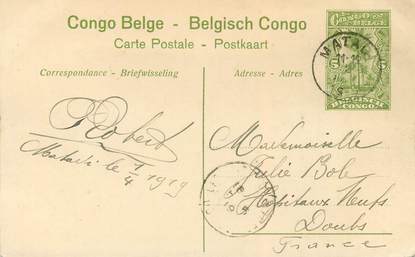 Congo Belge - Belgisch Congo
Carte Postale - Postkaart
Correspondance - Briefwisseling
Adresse - Adres
CONGO BELGE
5
BELGISCH CONGO
MATADI
Robert
Matadi le 1/4 1919
Mademoiselle
Julie Bole
Hôpitaux Neufs
Doubs
France